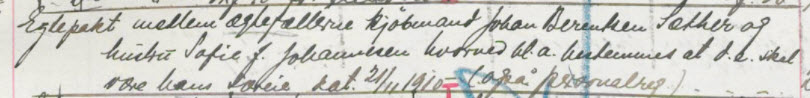 Egtepakt mellem ægtefællerne kjøbmand Johan Berentsen Sæther og
hustru Sofie f. Johannesen hvorved bl.a. bestemmes at d.e. skal
være hans særeie, dat. 21/11 1910 (også personalreg.)